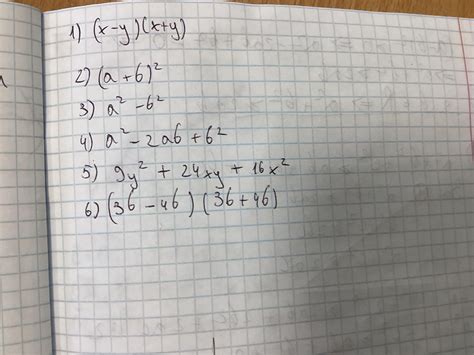 1) (x-y)(x+y)
2) (a+b)²
3) a² - b²
4) a² - 2ab + b²
5) 9y² + 24xy + 16x²
6) (3b - 4b)(3b + 4b)